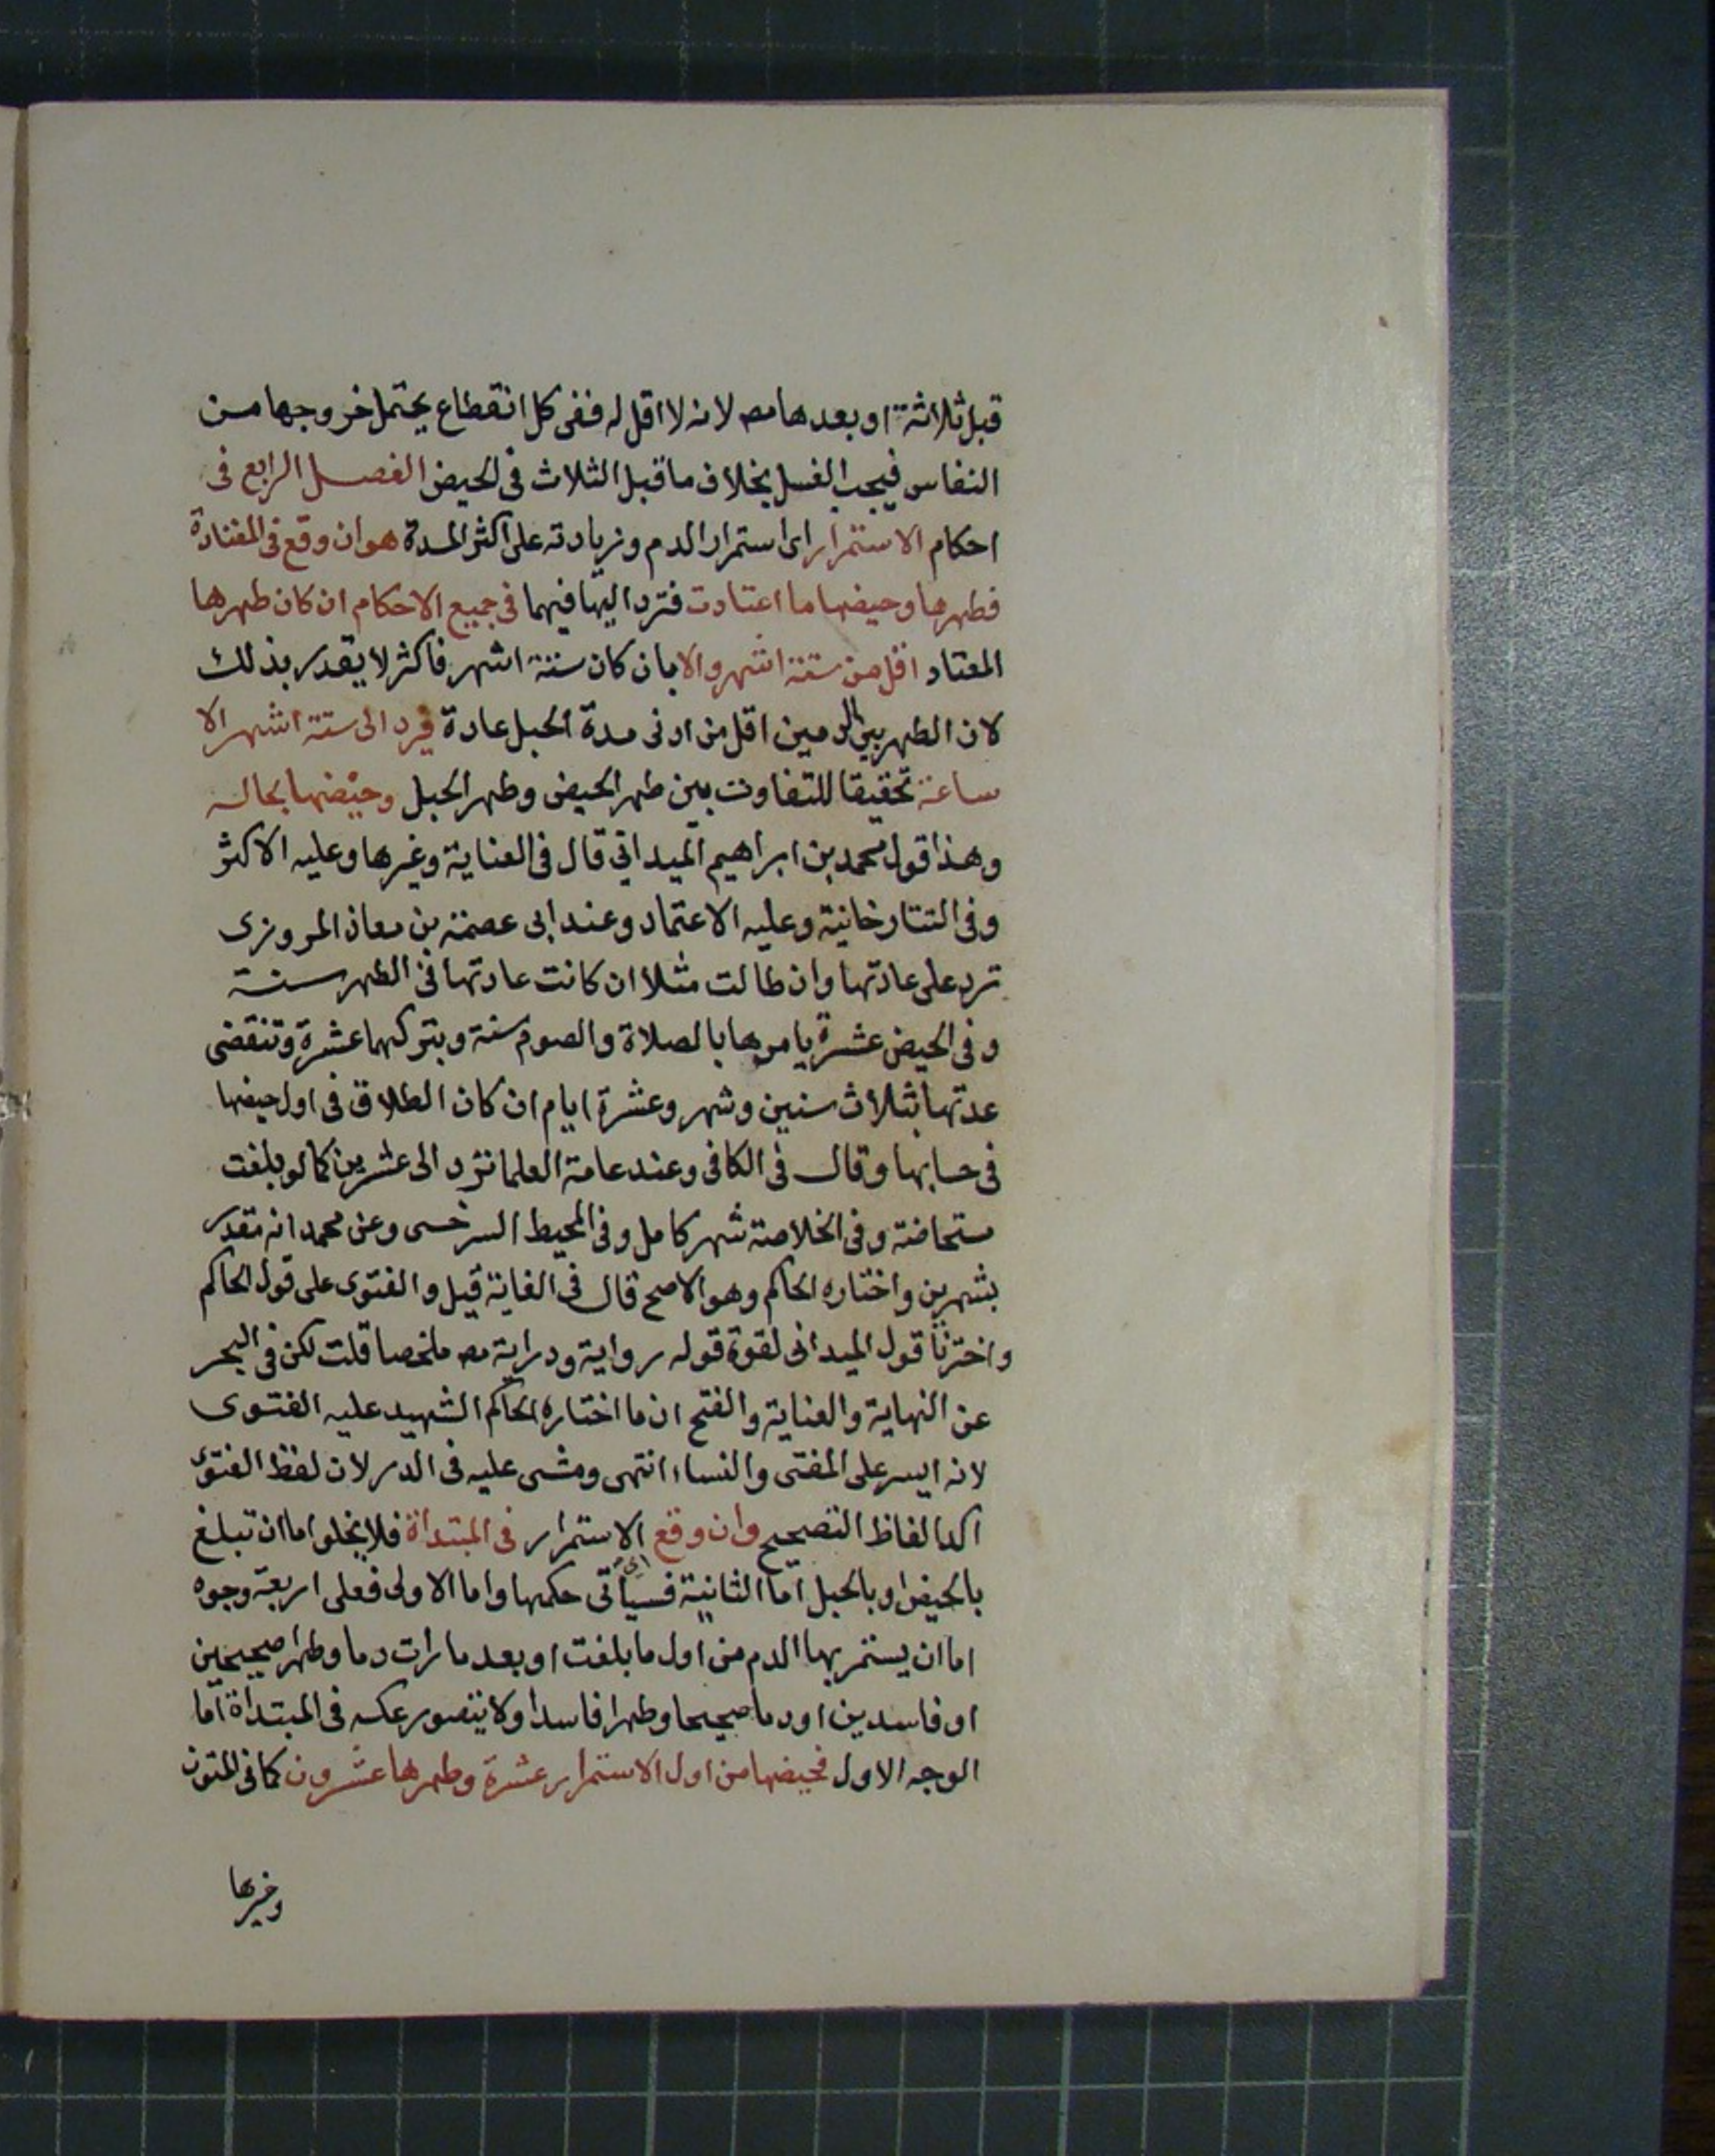 قبل ثلاثة او بعدها مصه لانه لا اقل له ففى كل انقطاع يحتمل خروجها من
النفاس فيجب الغسل بخلاف ما قبل الثلاث فى الحيض الفصل الرابع فى
احكام الاستمرار اى استمرار الدم وزيادته على اكثر المدة هو ان وقع فى المعتادة
فطهرها وحيضها ما اعتادت فترد اليها فيهما فى جميع الاحكام ان كان طهرها
المعتاد اقل من ستة اشهر والا بان كان ستة اشهر فاكثر لا يقدر بذلك
لان الطهر بين الدمين اقل من ادنى مدة الحبل عادة فيرد الى ستة اشهر الا
ساعة تحقيقا للتفاوت بين طهر الحيض وطهر الحبل وحيضها بحاله
وهذا قول محمد بن ابراهيم الميداني قال فى العناية وغيرها وعليه الاكثر
وفى التتارخانية وعليه الاعتماد وعند ابى عصمة بن معاذ المروزى
ترد على عادتها وان طالت مثلا ان كانت عادتها فى الطهر سنة
وفى الحيض عشرة يامرها بالصلاة والصوم سنة وبتركهما عشرة وتنقضى
عدتها بثلاث سنين وشهر وعشرة ايام ان كان الطلاق فى اول حيضها
فى حسابها وقال فى الكافى وعند عامة العلما ترد الى عشرين كما لو بلغت
مستحاضة وفى الخلاصة شهر كامل وفى المحيط السرخسى وعن محمد انه مقدر
بشهرين واختاره الحاكم وهو الاصح قال فى الغاية قيل والفتوى على قول الحاكم
واخترنا قول الميدانى لقوة قوله رواية ودراية مصه ملخصا قلت لكن فى البحر
عن النهاية والعناية والفتح ان ما اختاره الحاكم الشهيد عليه الفتوى
لانه ايسر على المفتى والنساء انتهى ومشى عليه فى الدر لان لفظ الفتوى
اكد الفاظ التصحيح وان وقع الاستمرار فى المبتداة فلا يخلوا اما ان تبلغ
بالحيض او بالحبل اما الثانية فسياتى حكمها واما الاولى فعلى اربعة وجوه
اما ان يستمر بها الدم من اول ما بلغت او بعد ما رات دما وطهرا صحيحين
او فاسدين او دما صحيحا وطهرا فاسدا ولا يتصور عكسه فى المبتداة اما
الوجه الاول فحيضها من اول الاستمرار عشرة وطهرها عشرون كما فى المتون
وغيرها